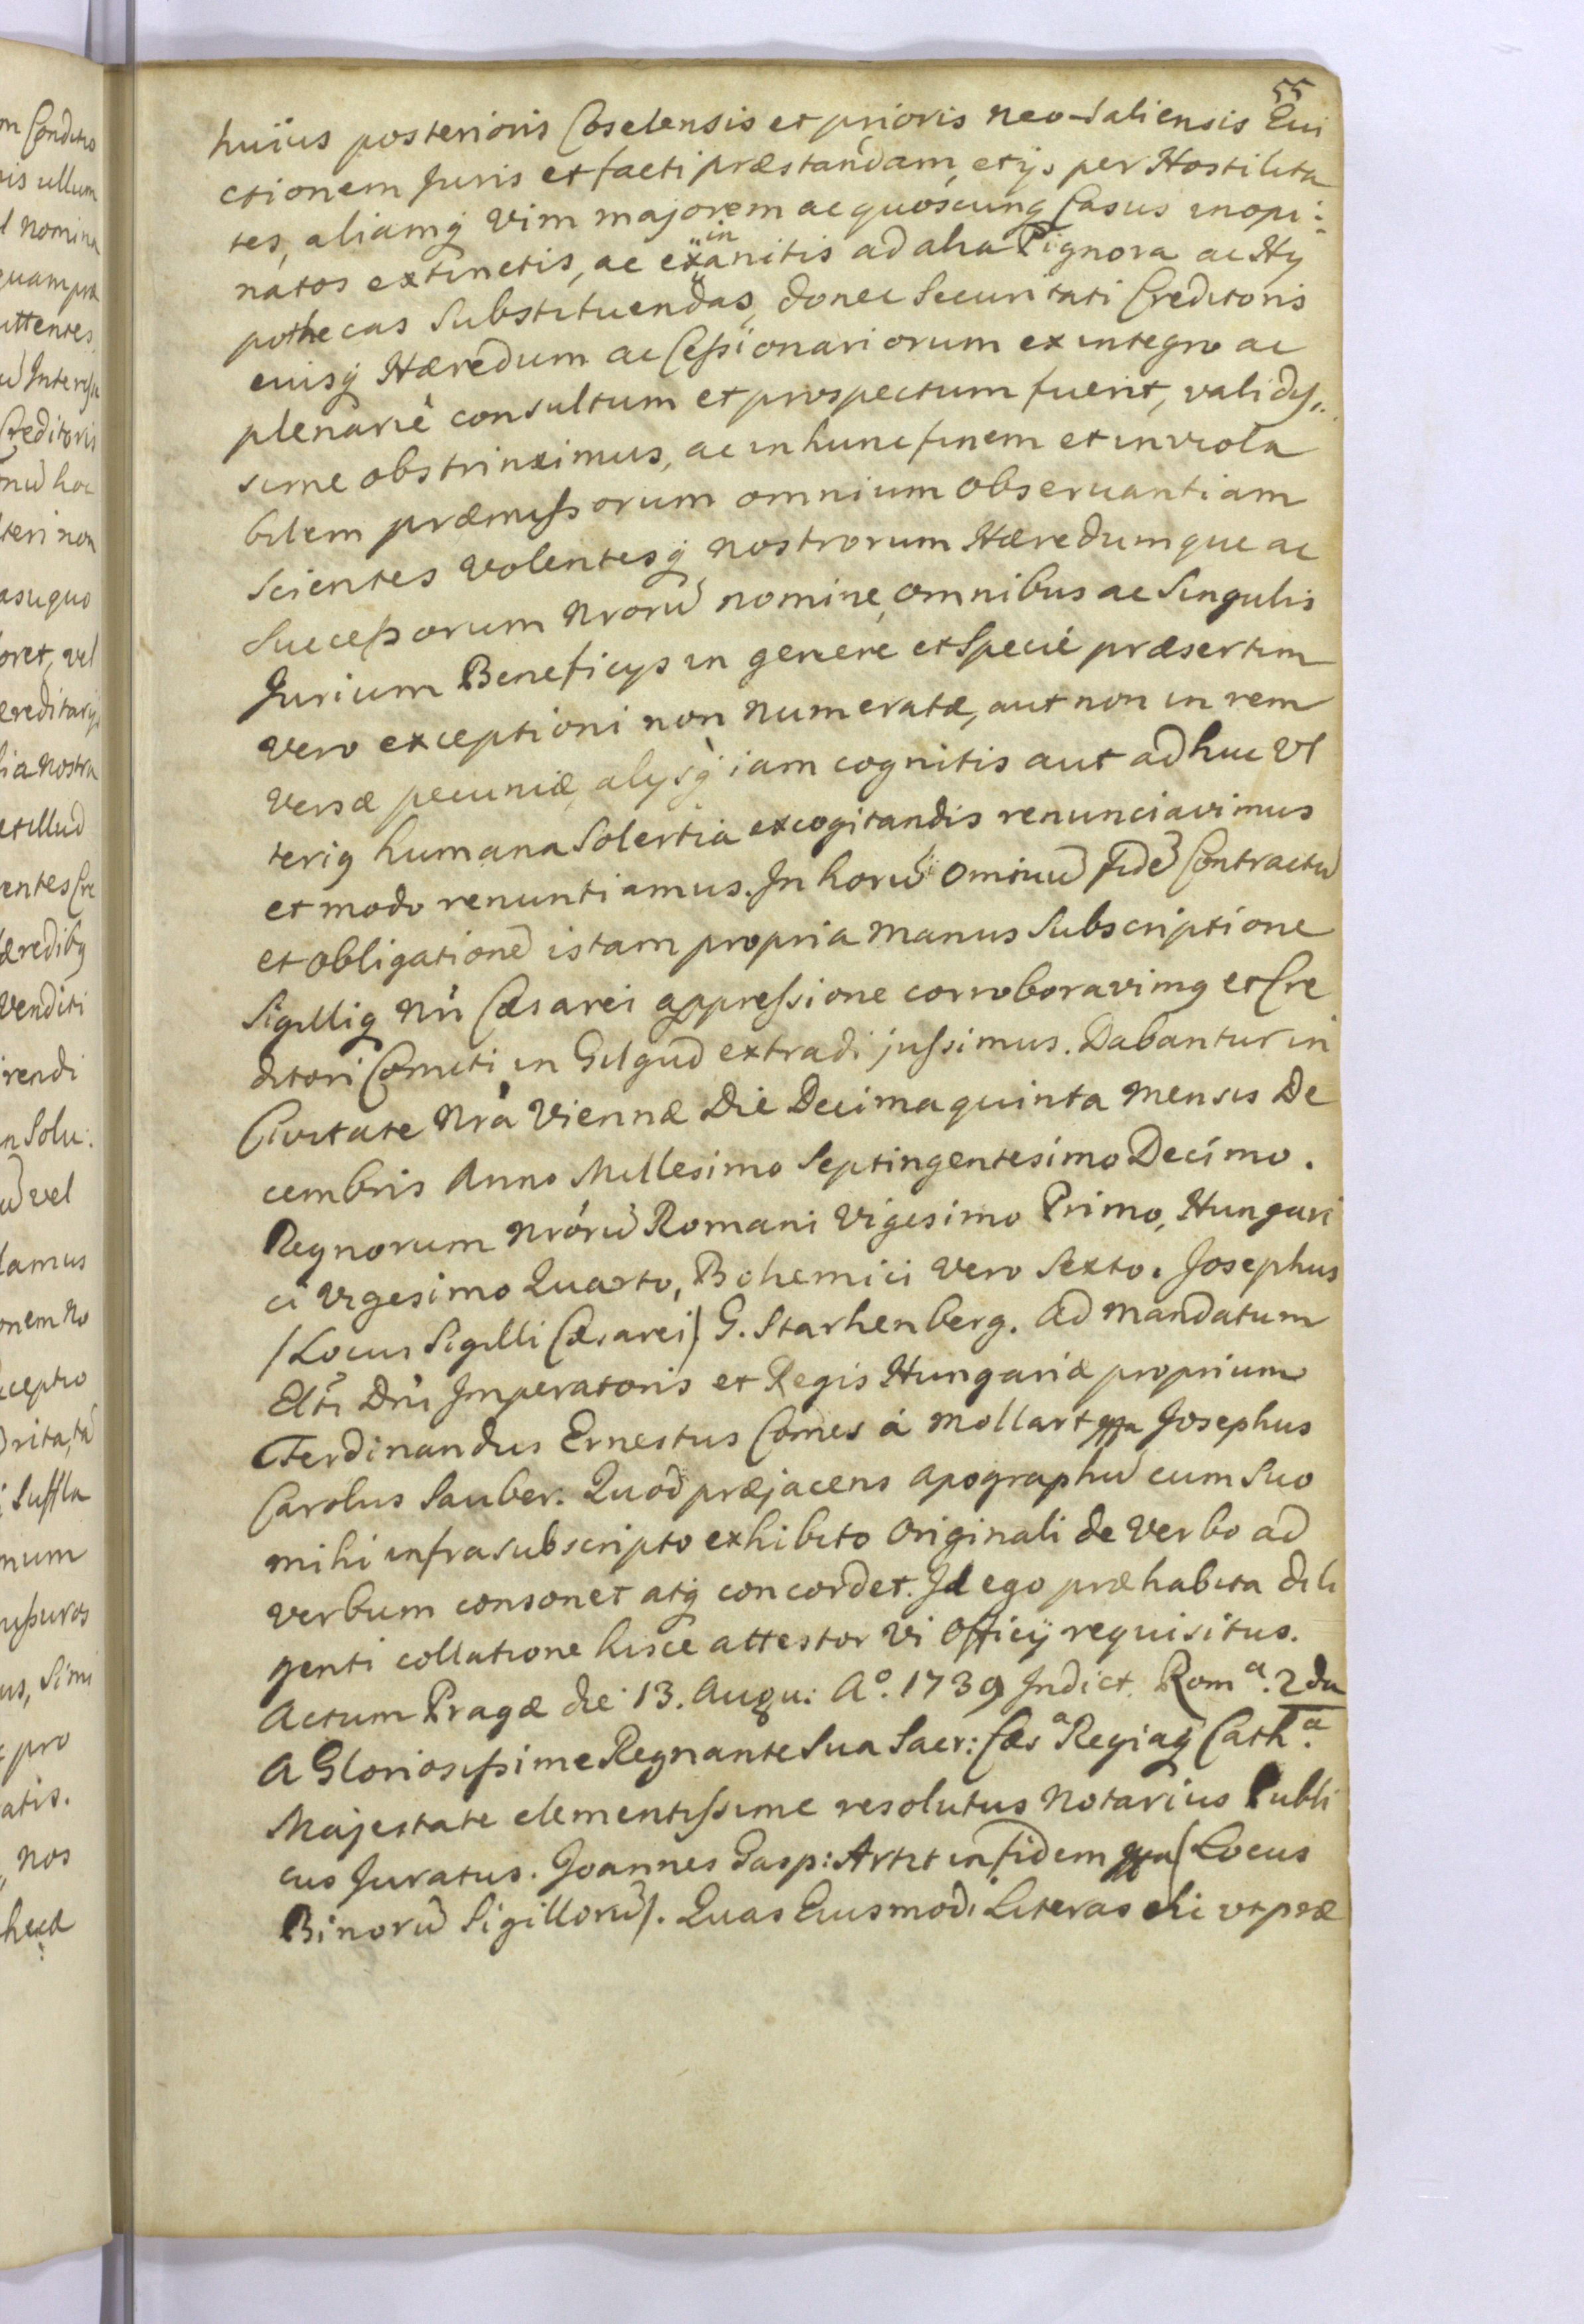 55
huius posterioris Coselensis et prioris neo-Saliensis Evi
ctionem Juris et facti præstandam, et ijs per Hostilita
tes, aliamq́ vim majorem ac quoscunq́ Casus inopi:
natos extinctis, ac exinanitis ad alia Pignora ac Hy
pothecas substituendas, donec securitati Creditoris
eiusq́ Hæredum ac Cessionariorum ex integro ac
plenarie consultum et prospectum fuerit, validis:
sime obstrinximus, ac in hunc finem et inviola
bilem præmissorum omnium observantiam
scientes volentesq́ nostrorum Hæredumque ac
Successorum nrorū nomine, omnibus ac singulis
Jurium Beneficijs in genere et specie præsertim
vero exceptioni non numeratæ, aut non in rem
versæ pecuniæ, alijsq́ iam cognitis aut adhuc vl
teriq humana solertia excogitandis renunciavimus
et modo renuntiamus. In horū omniū fidē Contractū
et obligationē istam propria manus subscriptione
Sigilliq nri Cæsarei appressione corroboravimq et Cre
ditori Comiti in Gilgud extradi jussimus. Dabantur in
Civitate nrà Viennæ Die Decimaquinta mensis De
cembris Anno Millesimo Septingentesimo Decimo.
Regnorum nrórū Romani Vigesimo Primo, Hungari
ci Vigesimo Quarto, Bohemici vero Sexto. Josephus
/Locus Sigilli Cæsarei/ G. Starhenberg. Ad mandatum
Elti Dni Imperatoris et Regis Hungariæ proprium
Ferdinandus Ernestus Comes á Mollart mppa Josephus
Carolus Sauber. Quod præjacens apographū cum suo
mihi infrasubscripto exhibito Originali de verbo ad
verbum consonet atq́ concordet. Id ego præhabita dili
genti collatione hisce attestor vi officij requisitus.
Actum Pragæ die 13. Augu: Aº. 1739 Indict. Romª. 2da
A Gloriosissime Regnante Sua Sacr: Cæsª Regiaq́ Cathª.
Majestate clementissime resolutus Notarius Publi
cus Juratus. Joannes Gasp: Artzt in fidem mppa (Locus
Binorū Sigillorū). Quas Eiusmodi Literas sic vt præ